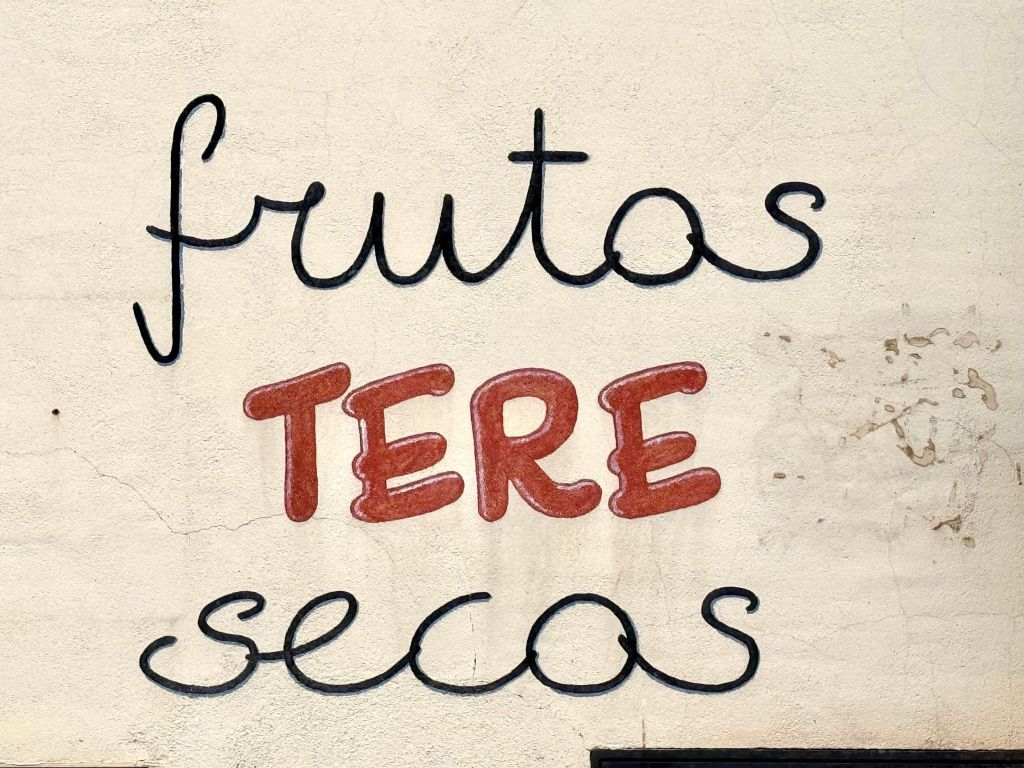 frutos
TERE
secos